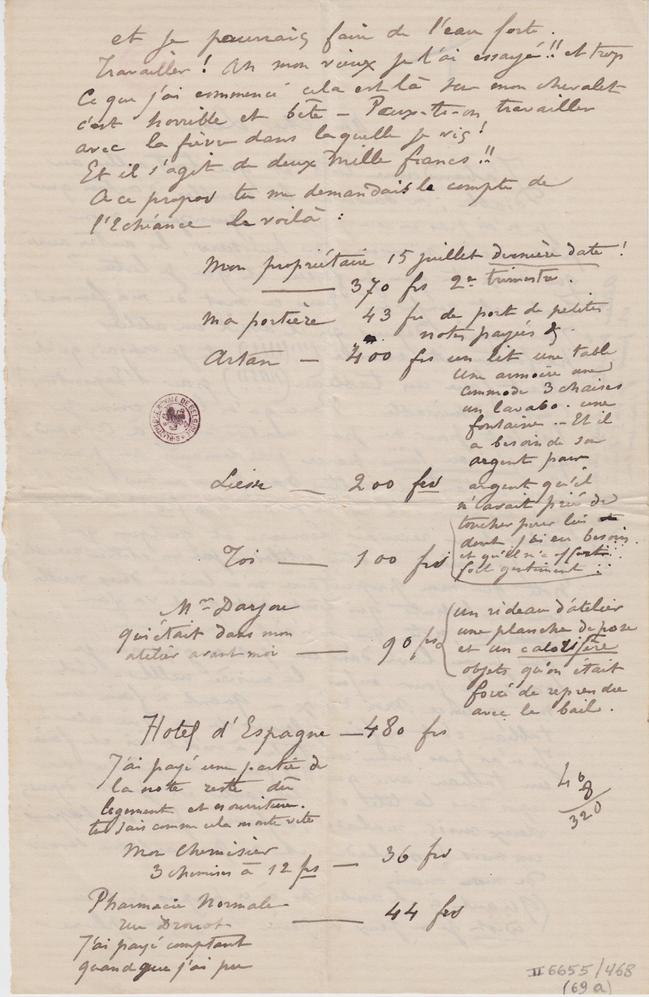 et je pourrais faire de l'eau forte.
Travailler! Ah mon vieux je l'ai essayé!! et trop
Ce que j'ai commencé cela est là sur mon chevalet
c'est horrible et bête – Peux-tu-on travailler
avec la fièvre dans laquelle je vis!
Et il s'agit de deux mille francs!!
A ce propos tu me demandais le compte de
l'Echéance le voilà :
Mon propriétaire 15 juillet dernière date!
370 frs 2e trimestre.
ma portière 43 frs de port de petites
notes payés &.
Artan – 400 frs un lit une table
une armoire une
commode 3 chaises
un lavabo. une
fontaine. – Et il
a besoin de son
argent pour
argent qu'il
n'avait prié de
Liesse — 200 frs
toucher pour lui
dont j'ai eu besoin.
et qu'il m'a offert!!
fort gentiment!!
Toi — 100 frs
Mr Darjou
qui était dans mon
atelier avant moi — 90 frs
un rideau d'atelier
une planche de pose
et un calorifère
objets qu'on était
forcé de reprendre
avec le bail.
Hotel d'Espagne — 480 frs
J'ai payé une partie de
la note reste du
logement et nourriture.
tu sais comme cela monte vite
40
8
320
Mon Chemisier
3 chemises à 12 frs — 36 frs
Pharmacie Normale
rue Drouot — 44 frs
J'ai payé comptant
quand que j'ai pu
BIBLIOTHEQUE ROYALE DE BELGIQUE
II 6655/468
(69 a)